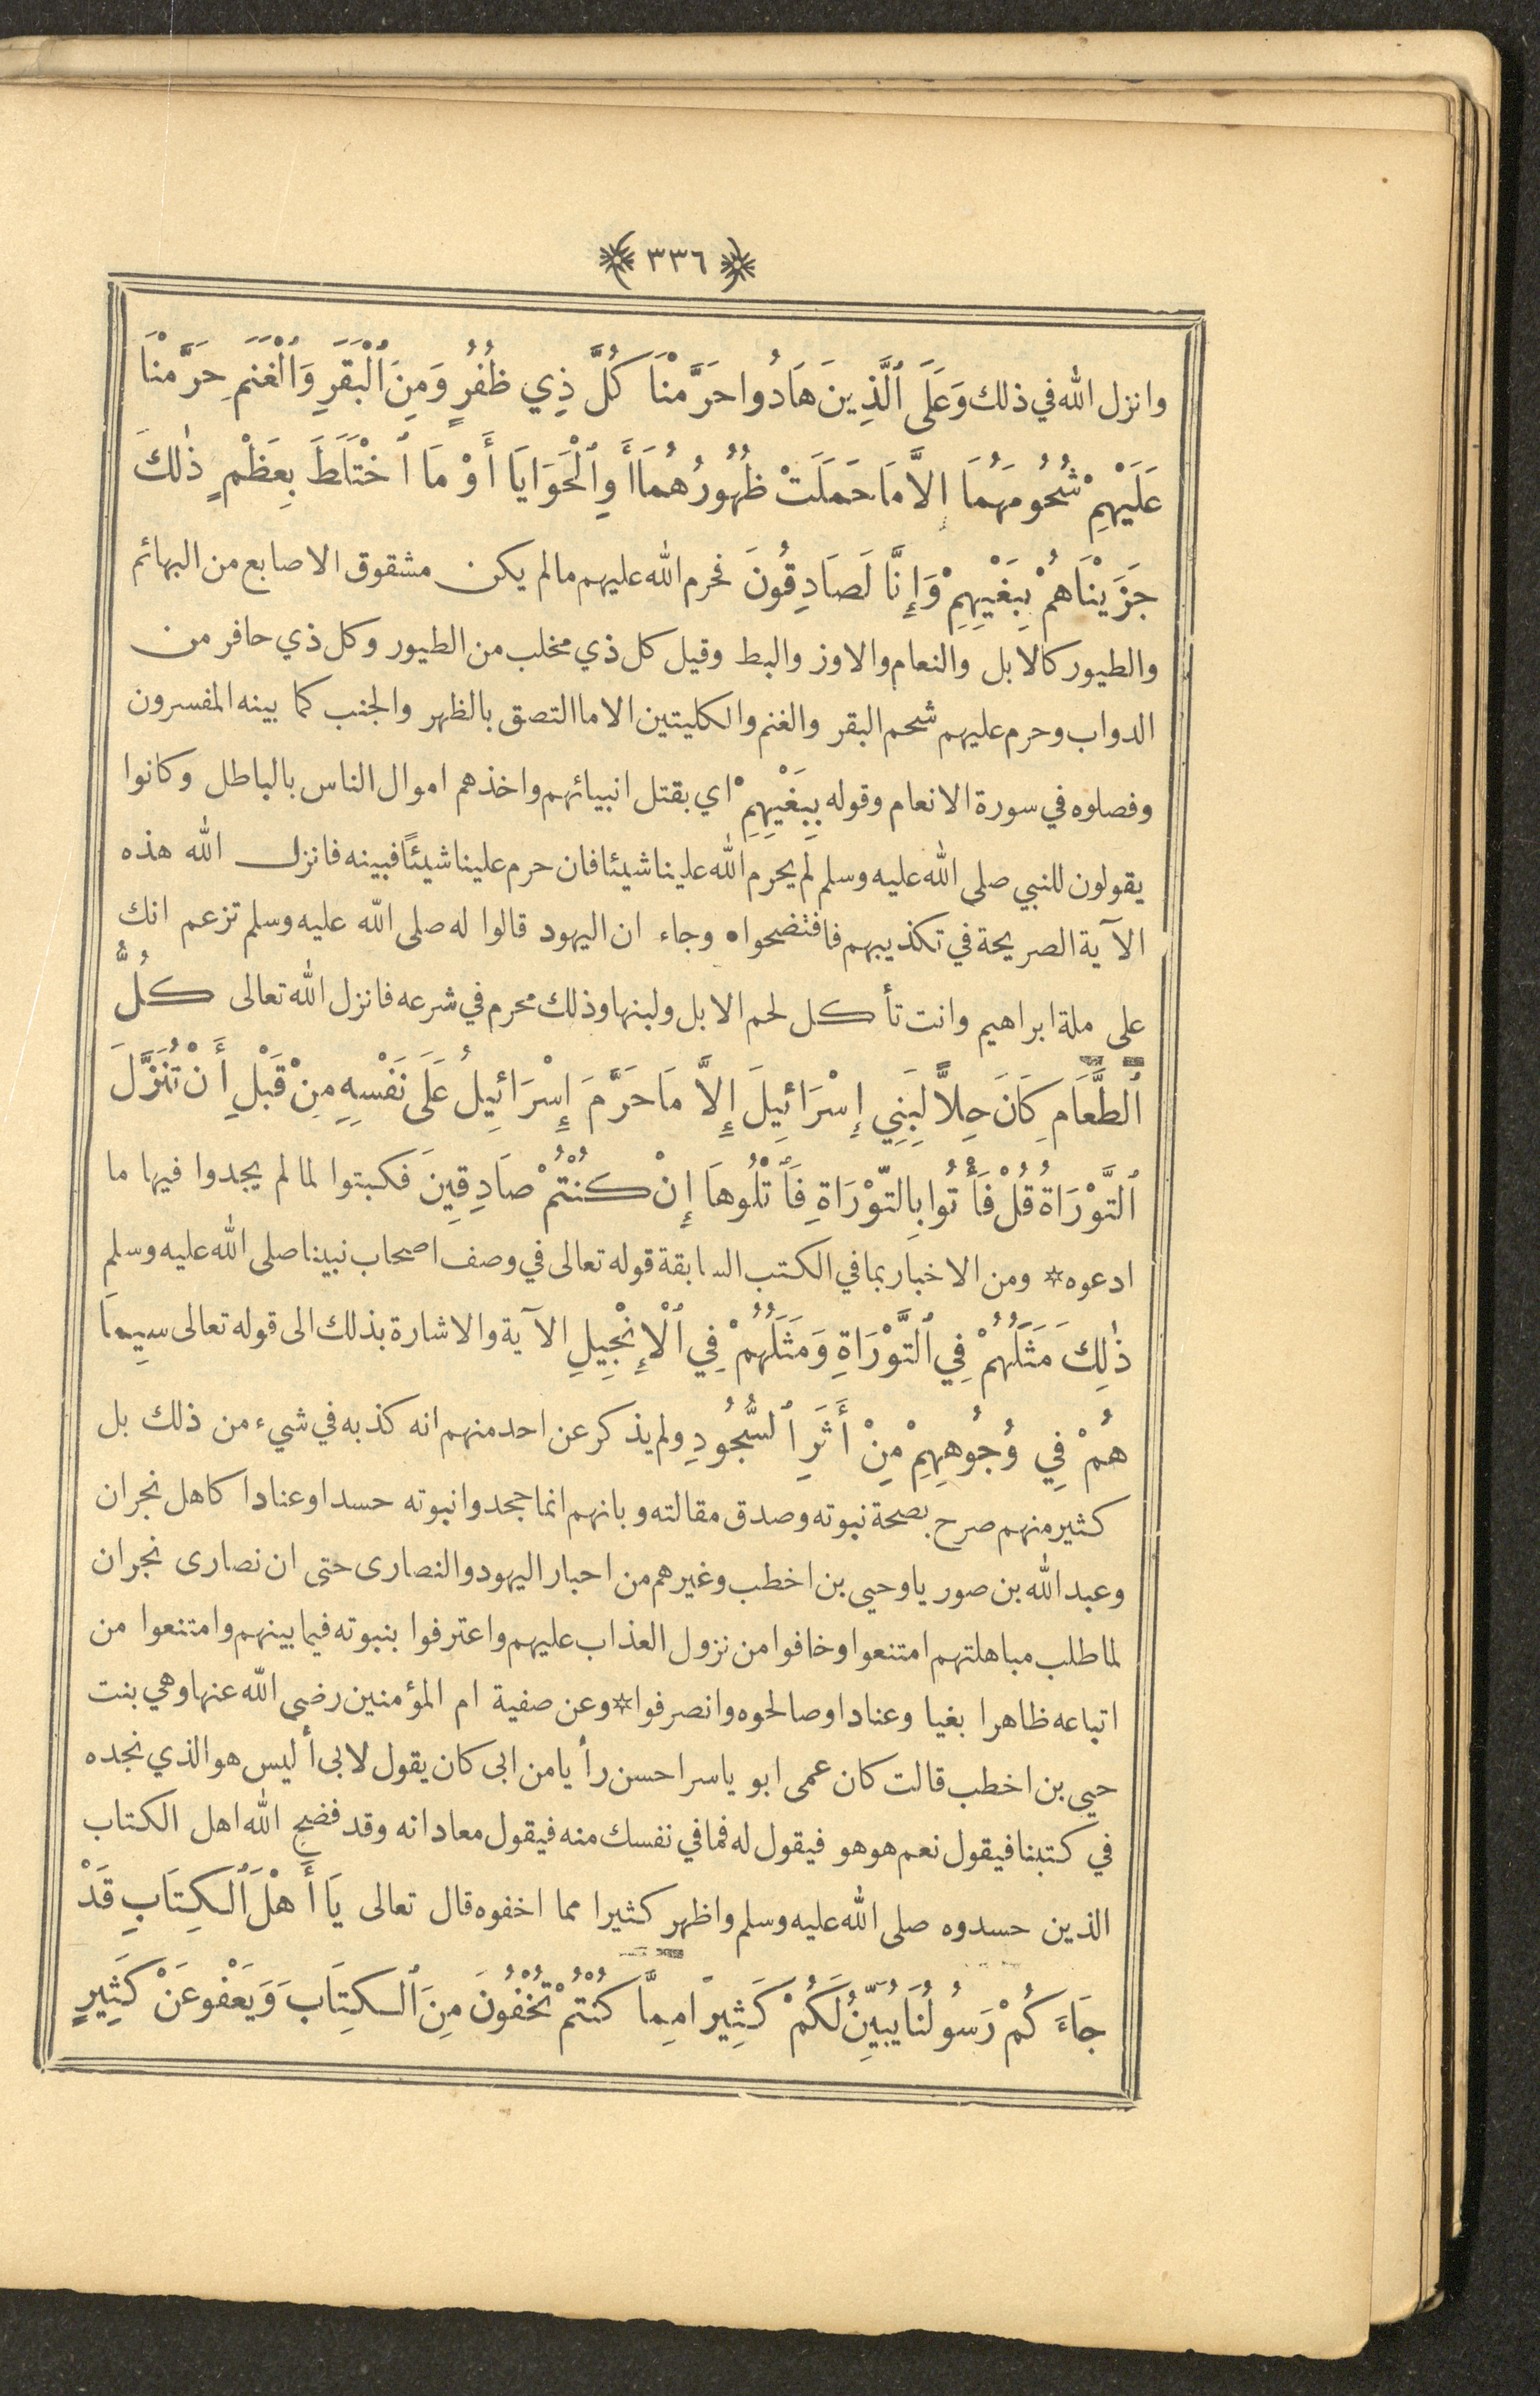 ٣٣٦
وانزل الله في ذلك وَعَلَى ٱلَّذِينَ هَادُوا حَرَّمْنَا كُلَّ ذِي ظُفُرٍ وَمِنَ ٱلْبَقَرِ وَٱلْغَنَمِ حَرَّمْنَا
عَلَيْهِمْ شُحُومَهُمَا إِلاَّ مَا حَمَلَتْ ظُهُورُهُمَا أَوِ ٱلْحَوَايَا أَوْ مَا ٱخْتَلَطَ بِعَظْمٍ ذٰلِكَ
جَزَيْنَاهُمْ بِبَغْيِهِمْ وَإِنَّا لَصَادِقُونَ فحرم الله عليهم مالم يكن مشقوق الاصابع من البهائم
والطيور كالابل والنعام والاوز والبط وقيل كل ذي مخلب من الطيور وكل ذي حافر من
الدواب وحرم عليهم شحم البقر والغنم والكليتين الا ما التصق بالظهر والجنب كما بينه المفسرون
وفصلوه في سورة الانعام وقوله بِبَغْيِهِمْ اي بقتل انبيائهم واخذهم اموال الناس بالباطل وكانوا
يقولون للنبي صلى الله عليه وسلم لم يحرم الله علينا شيئا فان حرم علينا شيئًا فبينه فانزل الله هذه
الآية الصريحة في تكذيبهم فافتضحوا• وجاء ان اليهود قالوا له صلى الله عليه وسلم تزعم انك
على ملة ابراهيم وانت تأكل لحم الابل ولبنها وذلك محرم في شرعه فانزل الله تعالى كُلُّ
ٱلطَّعَامِ كَانَ حِلاًّ لِبَنِي إِسْرَائِيلَ إِلاَّ مَا حَرَّمَ إِسْرَائِيلُ عَلَى نَفْسِهِ مِنْ قَبْلِ أَنْ تُنَزَّلَ
ٱلتَّوْرَاةُ قُلْ فَأْتُوا بِالتَّوْرَاةِ فَٱتْلُوهَا إِنْ كُنْتُمْ صَادِقِينَ فكبتوا لما لم يجدوا فيها ما
ادعوه* ومن الاخبار بما في الكتب السابقة قوله تعالى في وصف اصحاب نبينا صلى الله عليه وسلم
ذٰلِكَ مَثَلُهُمْ فِي ٱلتَّوْرَاةِ وَمَثَلُهُمْ فِي ٱلْإِنْجِيلِ الآية والاشارة بذلك الى قوله تعالى سِيمَا
هُمْ فِي وُجُوهِهِمْ مِنْ أَثَرِ ٱلسُّجُودِ ولم يذكر عن احد منهم انه كذبه في شيء من ذلك بل
كثير منهم صرح بصحة نبوته وصدق مقالته وبانهم انما جحدوا نبوته حسدا وعنادا كاهل نجران
وعبد الله بن صوريا وحيي بن اخطب وغيرهم من احبار اليهود والنصارى حتى ان نصارى نجران
لما طلب مباهلتهم امتنعوا وخافوا من نزول العذاب عليهم واعترفوا بنبوته فيما بينهم وامتنعوا من
اتباعه ظاهرا بغيا وعنادا وصالحوه وانصرفوا* وعن صفية ام المؤمنين رضي الله عنها وهي بنت
حيي بن اخطب قالت كان عمى ابو ياسر احسن رأيا من ابى كان يقول لابى أليس هو الذي نجده
في كتبنا فيقول نعم هو هو فيقول له فما في نفسك منه فيقول معاداته وقد فضح الله اهل الكتاب
الذين حسدوه صلى الله عليه وسلم واظهر كثيرا مما اخفوه قال تعالى يَا أَهْلَ ٱلْكِتَابِ قَدْ
جَاءَكُمْ رَسُولُنَا يُبَيِّنُ لَكُمْ كَثِيرًا مِمَّا كُنْتُمْ تُخْفُونَ مِنَ ٱلْكِتَابِ وَيَعْفُو عَنْ كَثِيرٍ